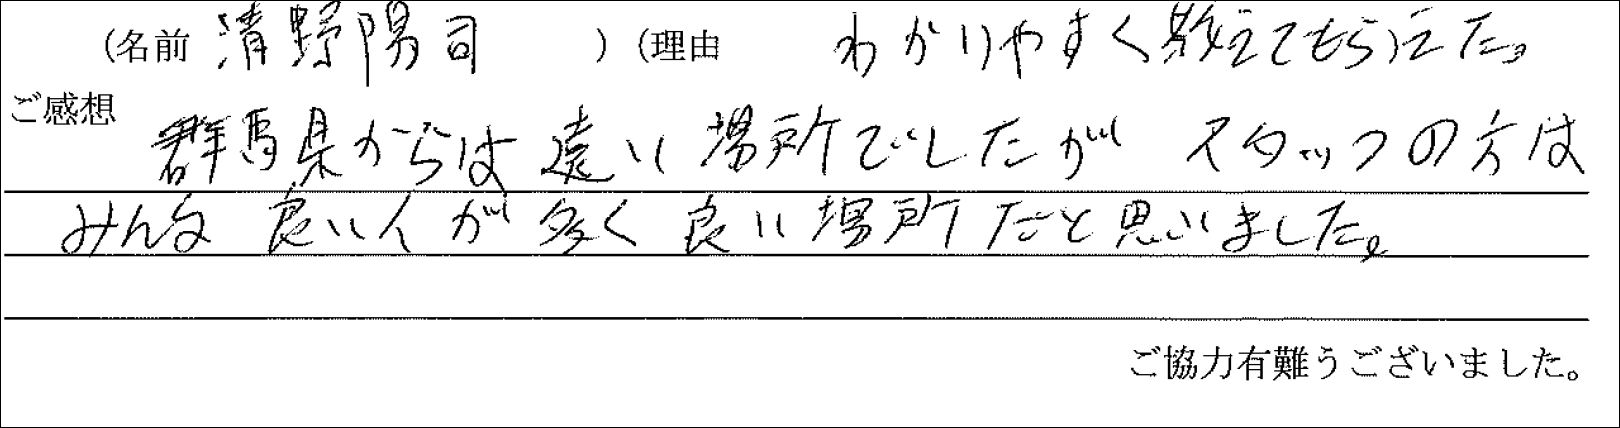 (名前 清野陽司 ) (理由 わかりやすく教えてもらえた。
ご感想
群馬県からは遠い場所でしたが スタッフの方は
みんな 良い人が 多く 良い場所だと思いました。
ご協力有難うございました。